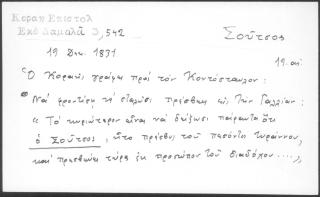 Κοραη Επιστολ
Εκδ Δαμαλᾶ 3,542
Σοῦτσος
19 Δεκ. 1831.
19 αι
Ὁ Κοραῆς γράφει πρὸς τὸν Κοντόσταυλον:
Νὰ φροντίσῃ νὰ στείλωσι πρέσβυν εἰς τὴν Γαλλίαν:
« Τὸ κυριώτερον εἶναι νὰ δείξωσι παρρησίᾳ ὅτι
ὁ Σοῦτσος, ἦτο πρέσβυς τοῦ πεσόντος τυράννου,
καὶ πρεσβεύει τώρα ἐκ προσώπου τοῦ διαδόχου ....»